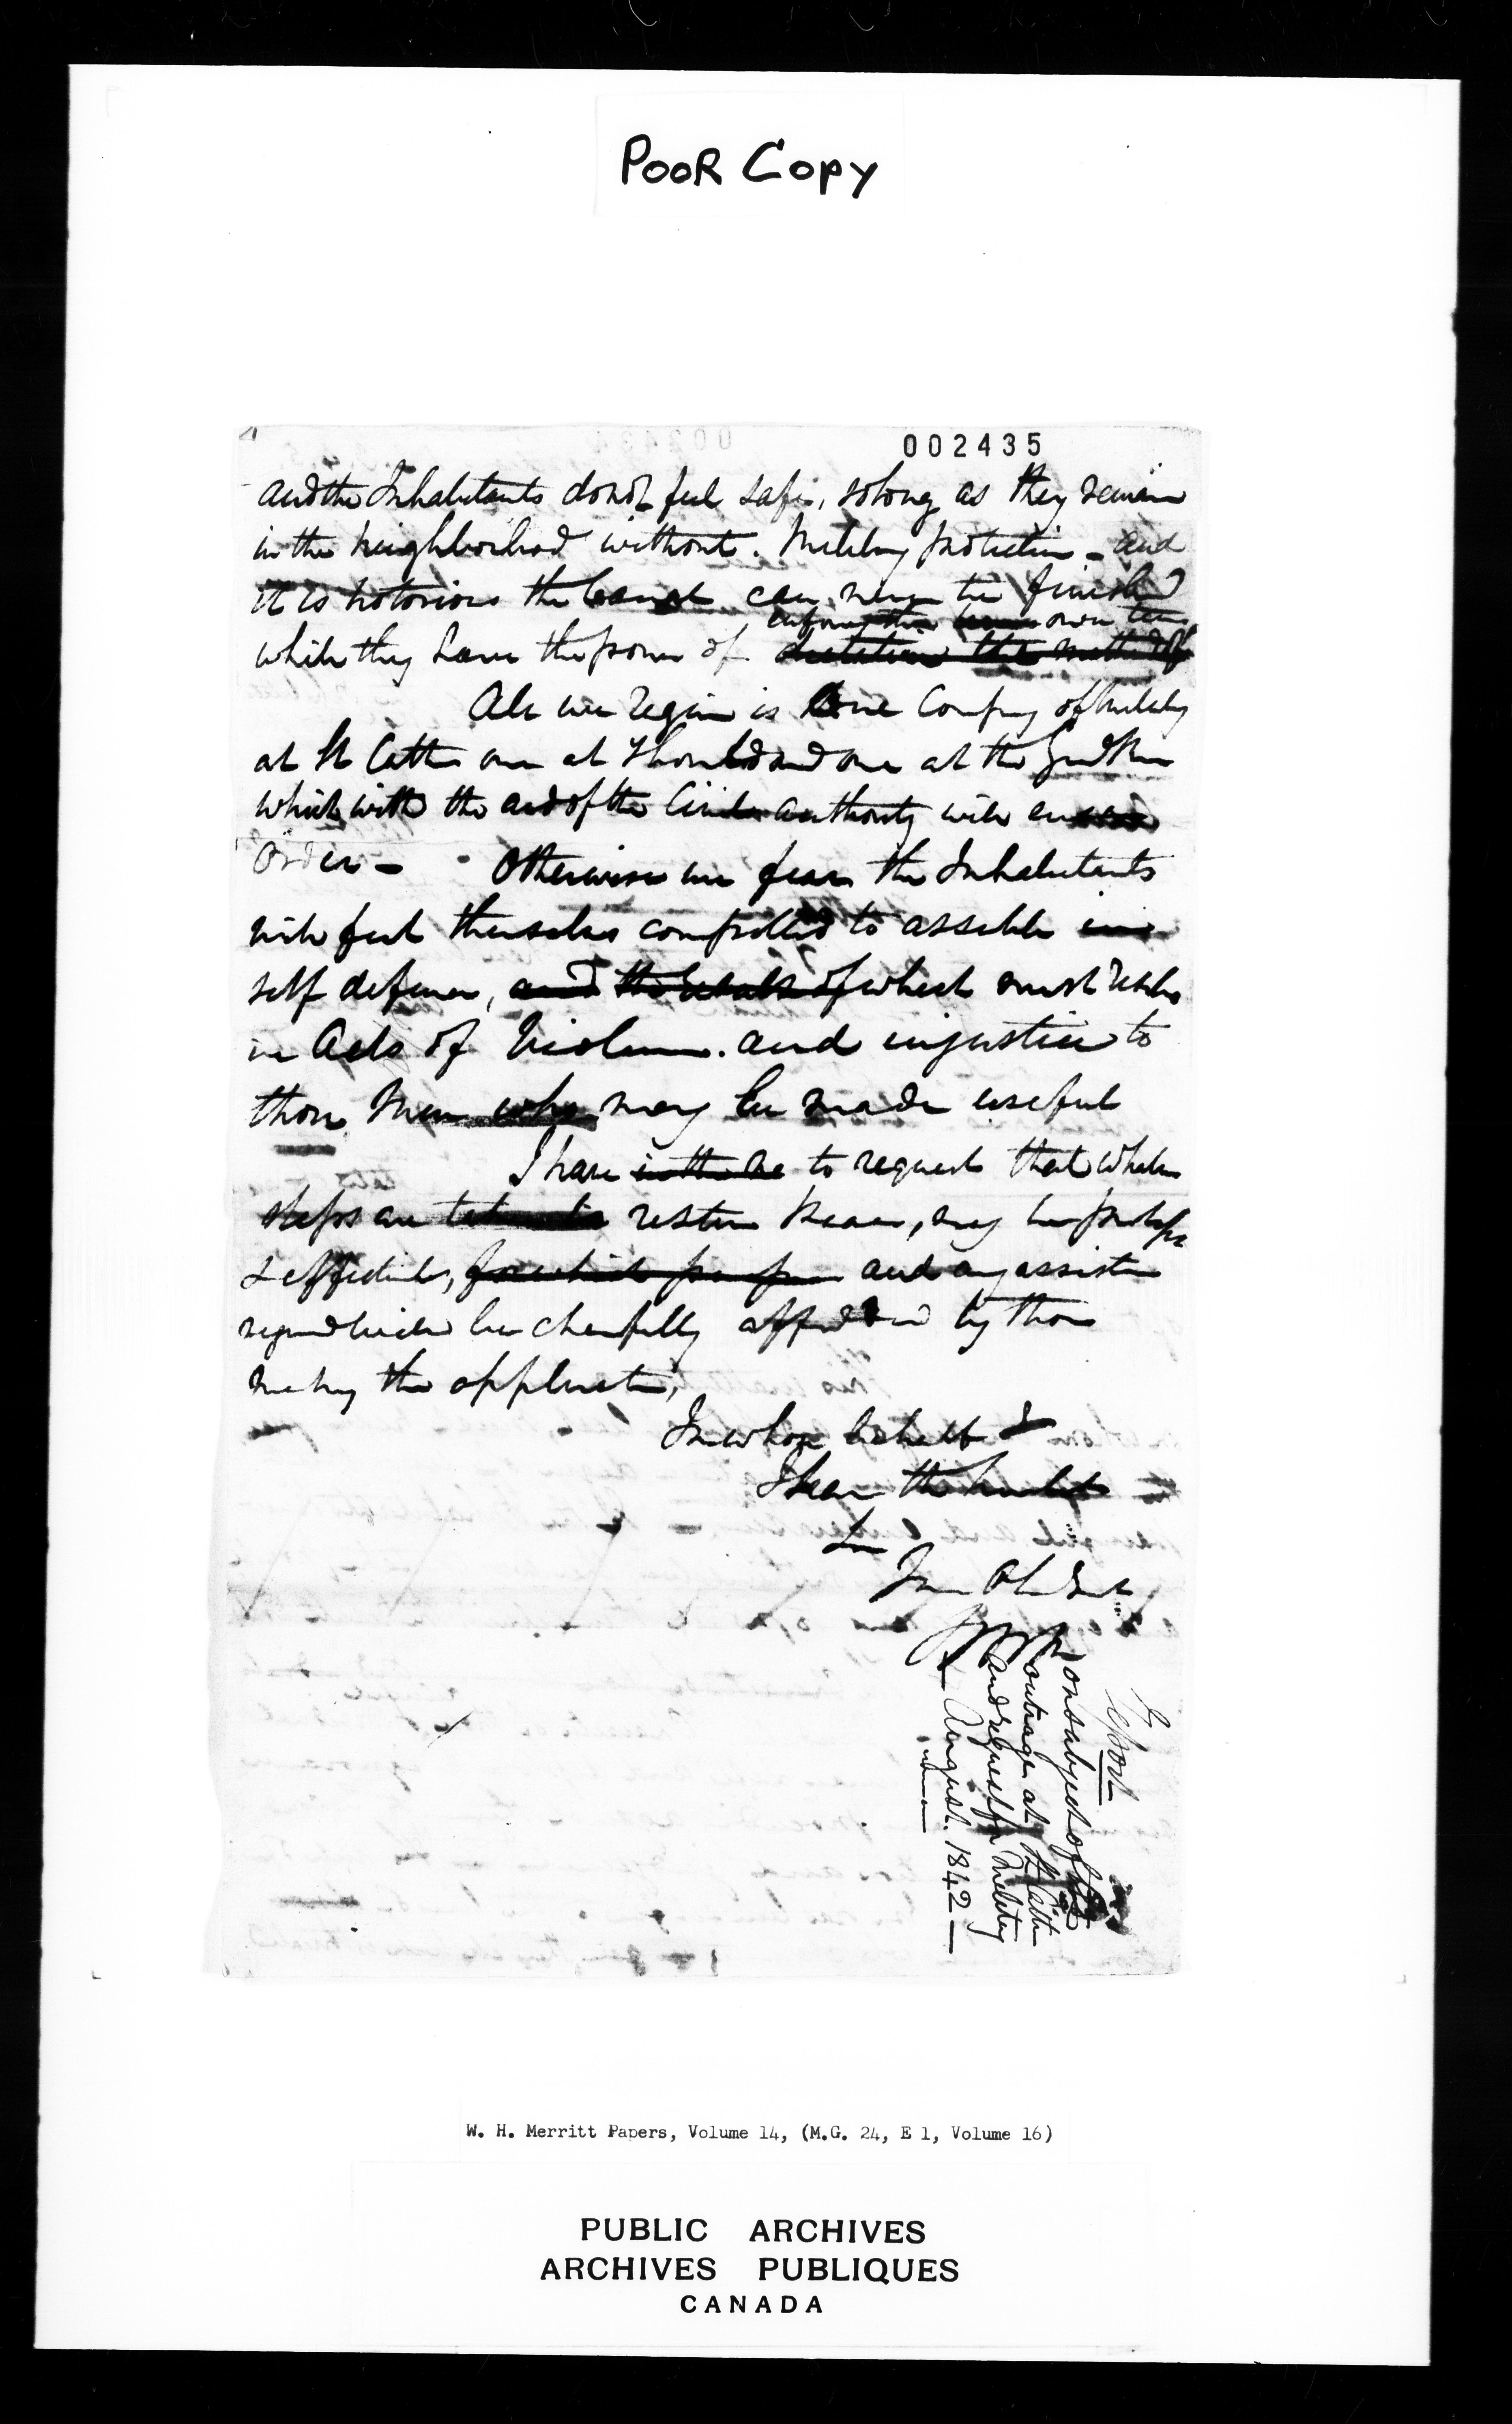 POOR COPY
002435
and the Inhabitants do not feel safe, so long as they remain
in the neighborhood without Military protection - and
it is notorious the Canal can never be finished
enforcing their own
while they have the power of dictation the method of
All we require is One Company of Military
at St Cath one at Thorold and one at the
which with the aid of the Civil authority will
Order - Otherwise we fear the Inhabitants
will feel themselves compelled to assemble in
self defence, and the result of which must
in Acts of Violence. and injustice to
those Men who may be made useful
I have to request that whatever
steps are restore Peace, may be prompt
& effectual, for which purpose and any assistance
required will be cheerfully afforded by those
making the application,
In whose behalf I
I have the
Your Obt Servt
Report
on subject of
outrage at St Cath
and request for Military
August. 1842 -
W. H. Merritt Papers, Volume 14, (M.G. 24, E 1, Volume 16)
PUBLIC ARCHIVES
ARCHIVES PUBLIQUES
CANADA